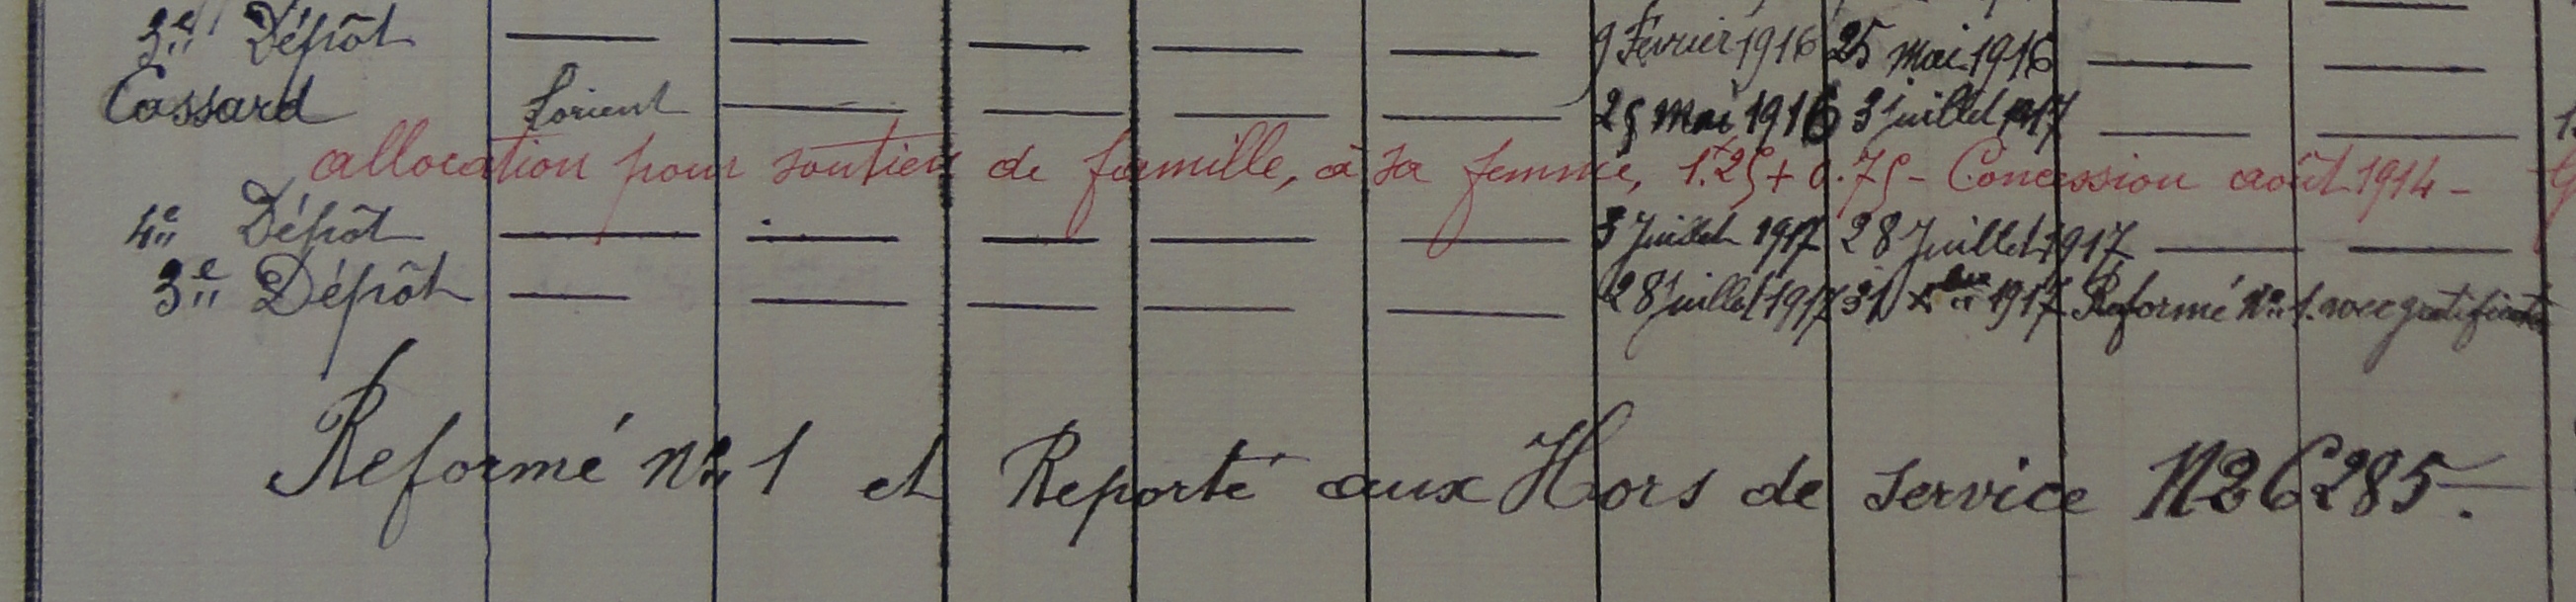 3e Dépôt — — — — — 9 Février 1916 25 mai 1916 — —
Cassard Lorient — — — — 25 mai 1916 3 juillet 1917 — —
allocation pour soutien de famille, à sa femme, 1.25 + 0.75 - Concession août 1914 -
4e Dépôt — — — — — 3 Juillet 1917 28 Juillet 1917 — —
3e Dépôt — — — — — 28 juillet 1917 31 Xbre 1917 Reformé No 1. avec gratification
Reformé No 1 et Reporté aux Hors de service No 6285.